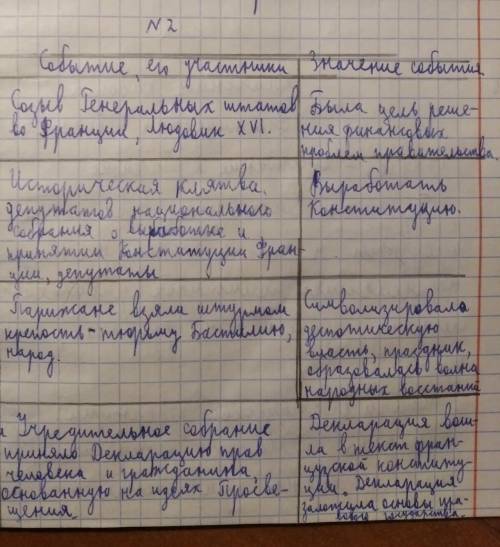 N 2
Событие, его участники
Значение события
Созыв Генеральных штатов
во Франции, Людовик XVI.
Была цель реше-
ния финансовых
проблем правительства
Историческая клятва
депутатов национального
собрания о выработке и
принятии Конституции Фран-
ции, депутаты
Выработать
Конституцию.
Парижане взяли штурмом
крепость-тюрьму Бастилию,
народ.
Символизировала
деспотическую
власть, праздник,
образовалась волна
народных восстаний
Учредительное собрание
приняло Декларацию прав
человека и гражданина,
основанную на идеях Просве-
щения.
Декларация вош-
ла в текст фран-
цузской конститу-
ции. Декларация
заложила основы пра-
вового государства.